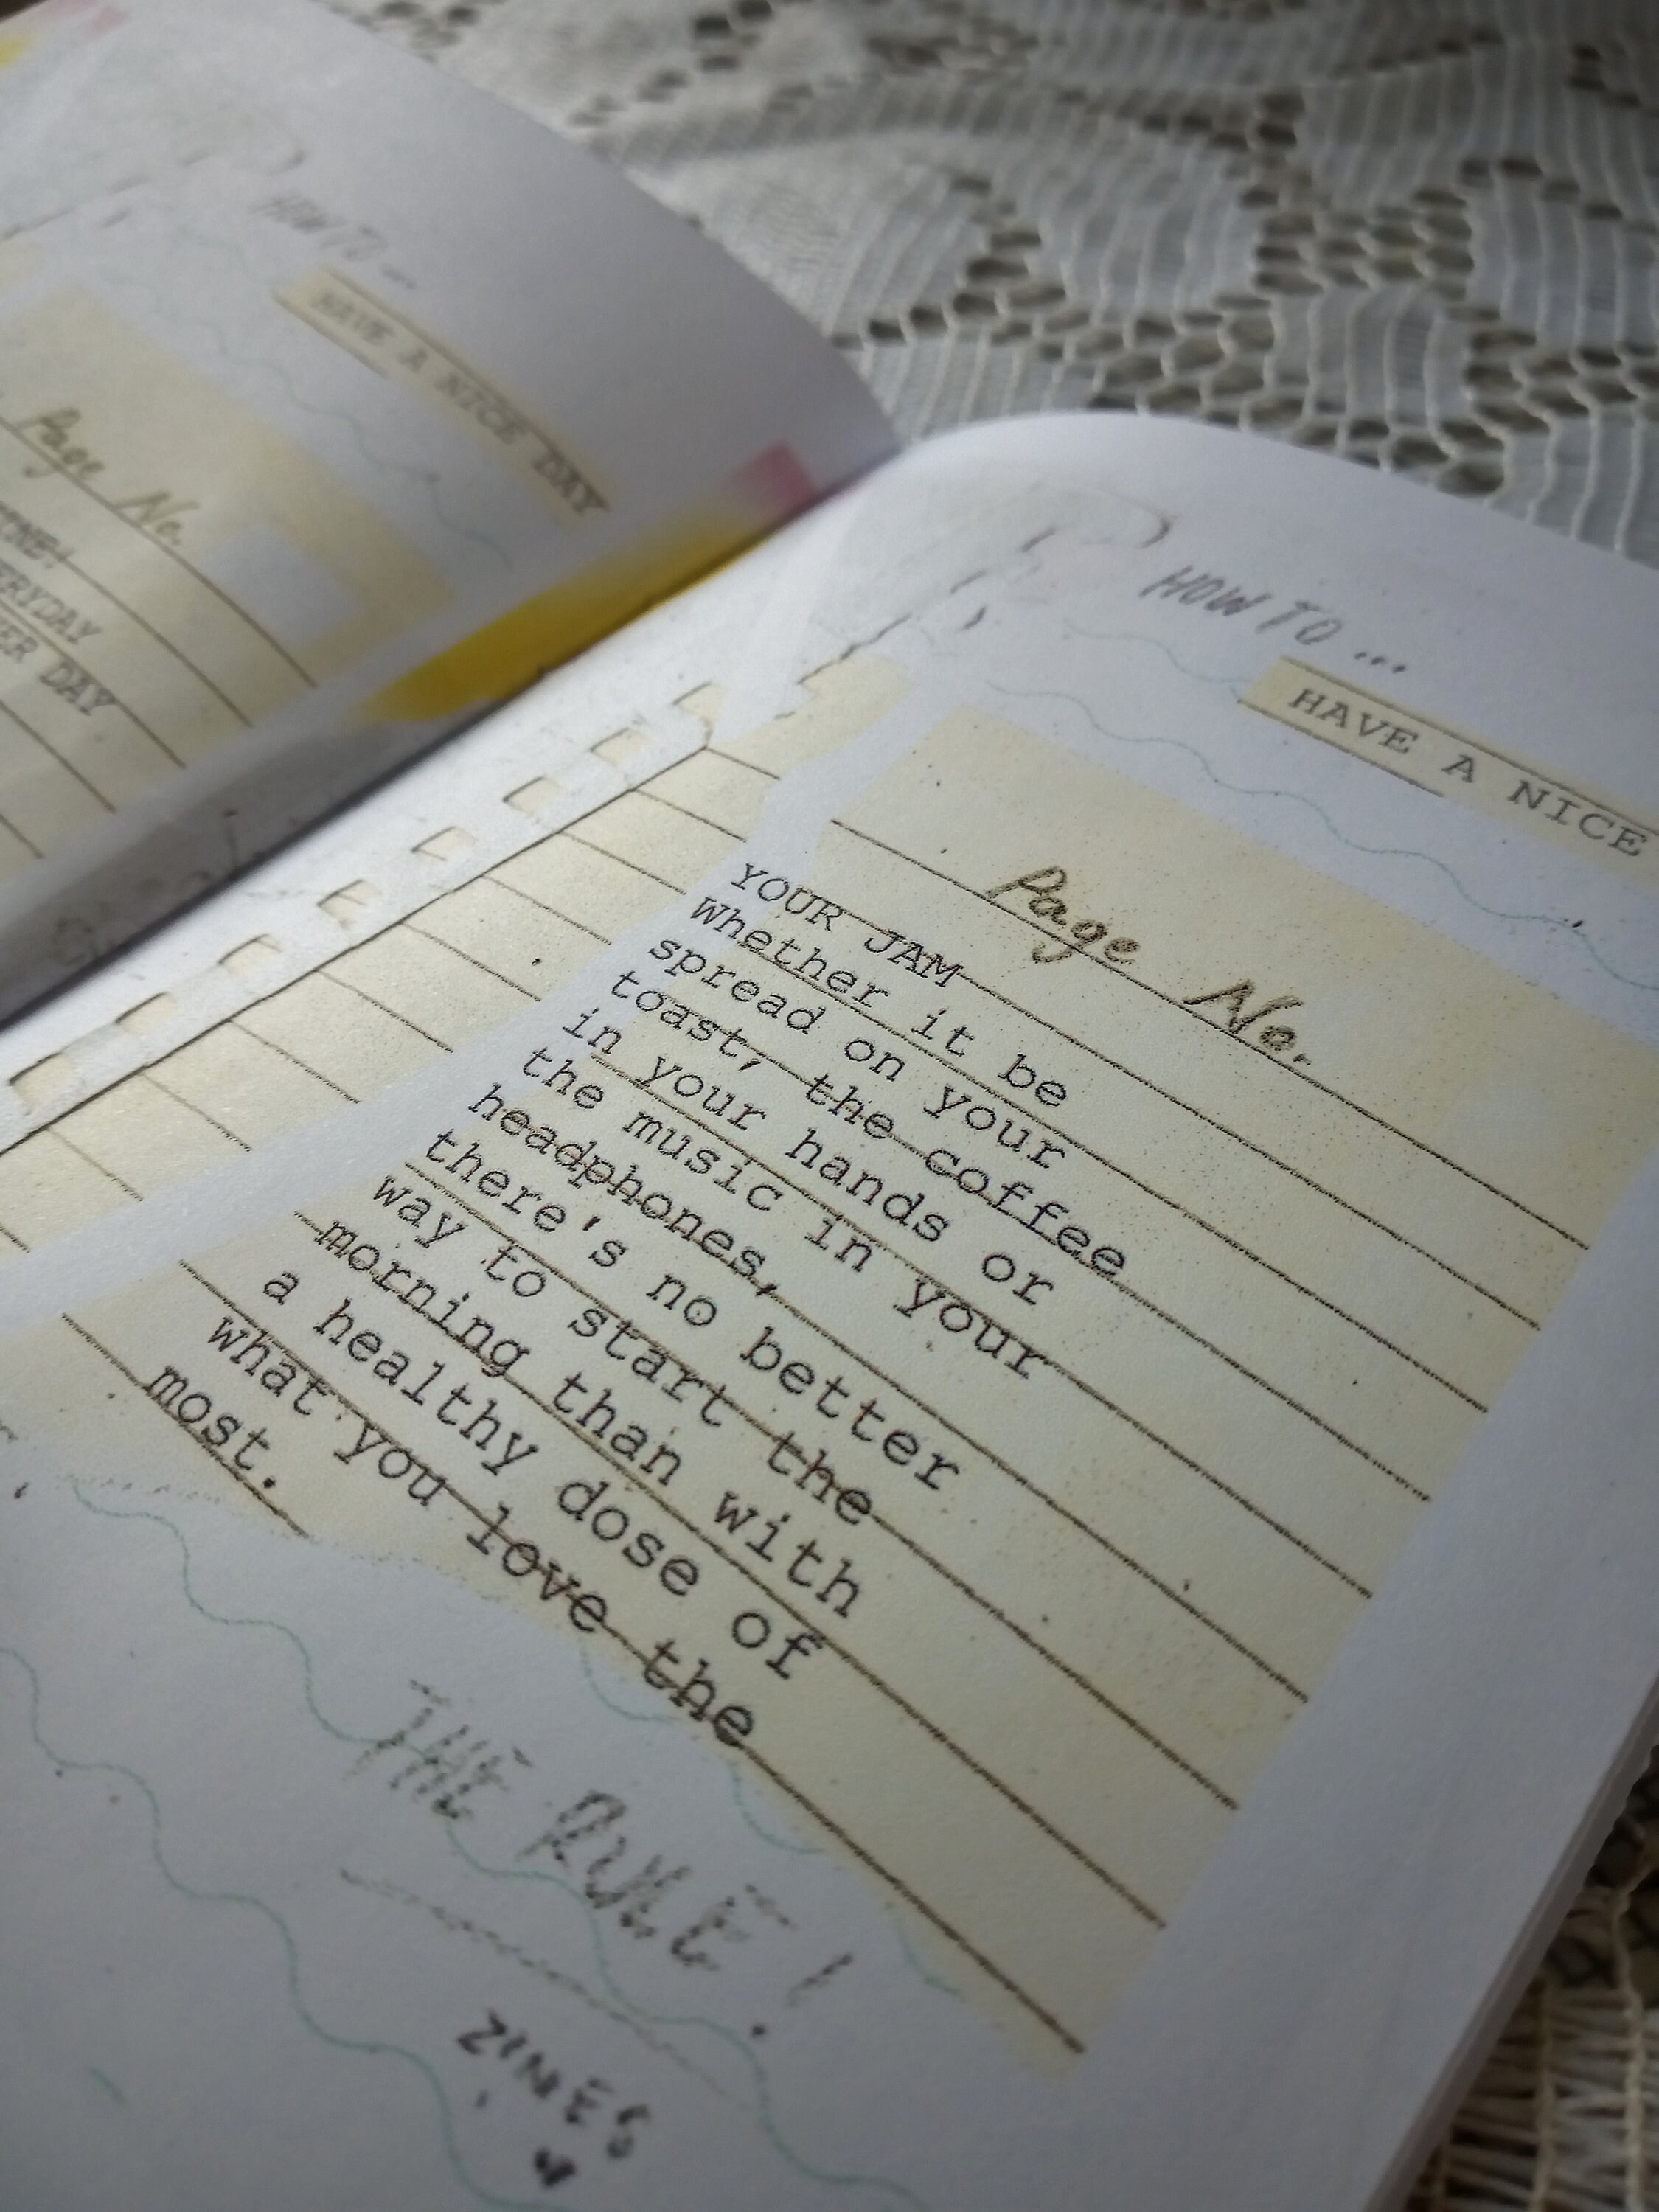 HOW TO ...
HAVE A NICE DAY
Page No.
ERYDAY
ER DAY
HOW TO ...
HAVE A NICE
Page No.
YOUR JAM
Whether it be
spread on your
toast, the coffee
in your hands or
the music in your
headphones,
there's no better
way to start the
morning than with
a healthy dose of
what you love the
most.
THE RULE!